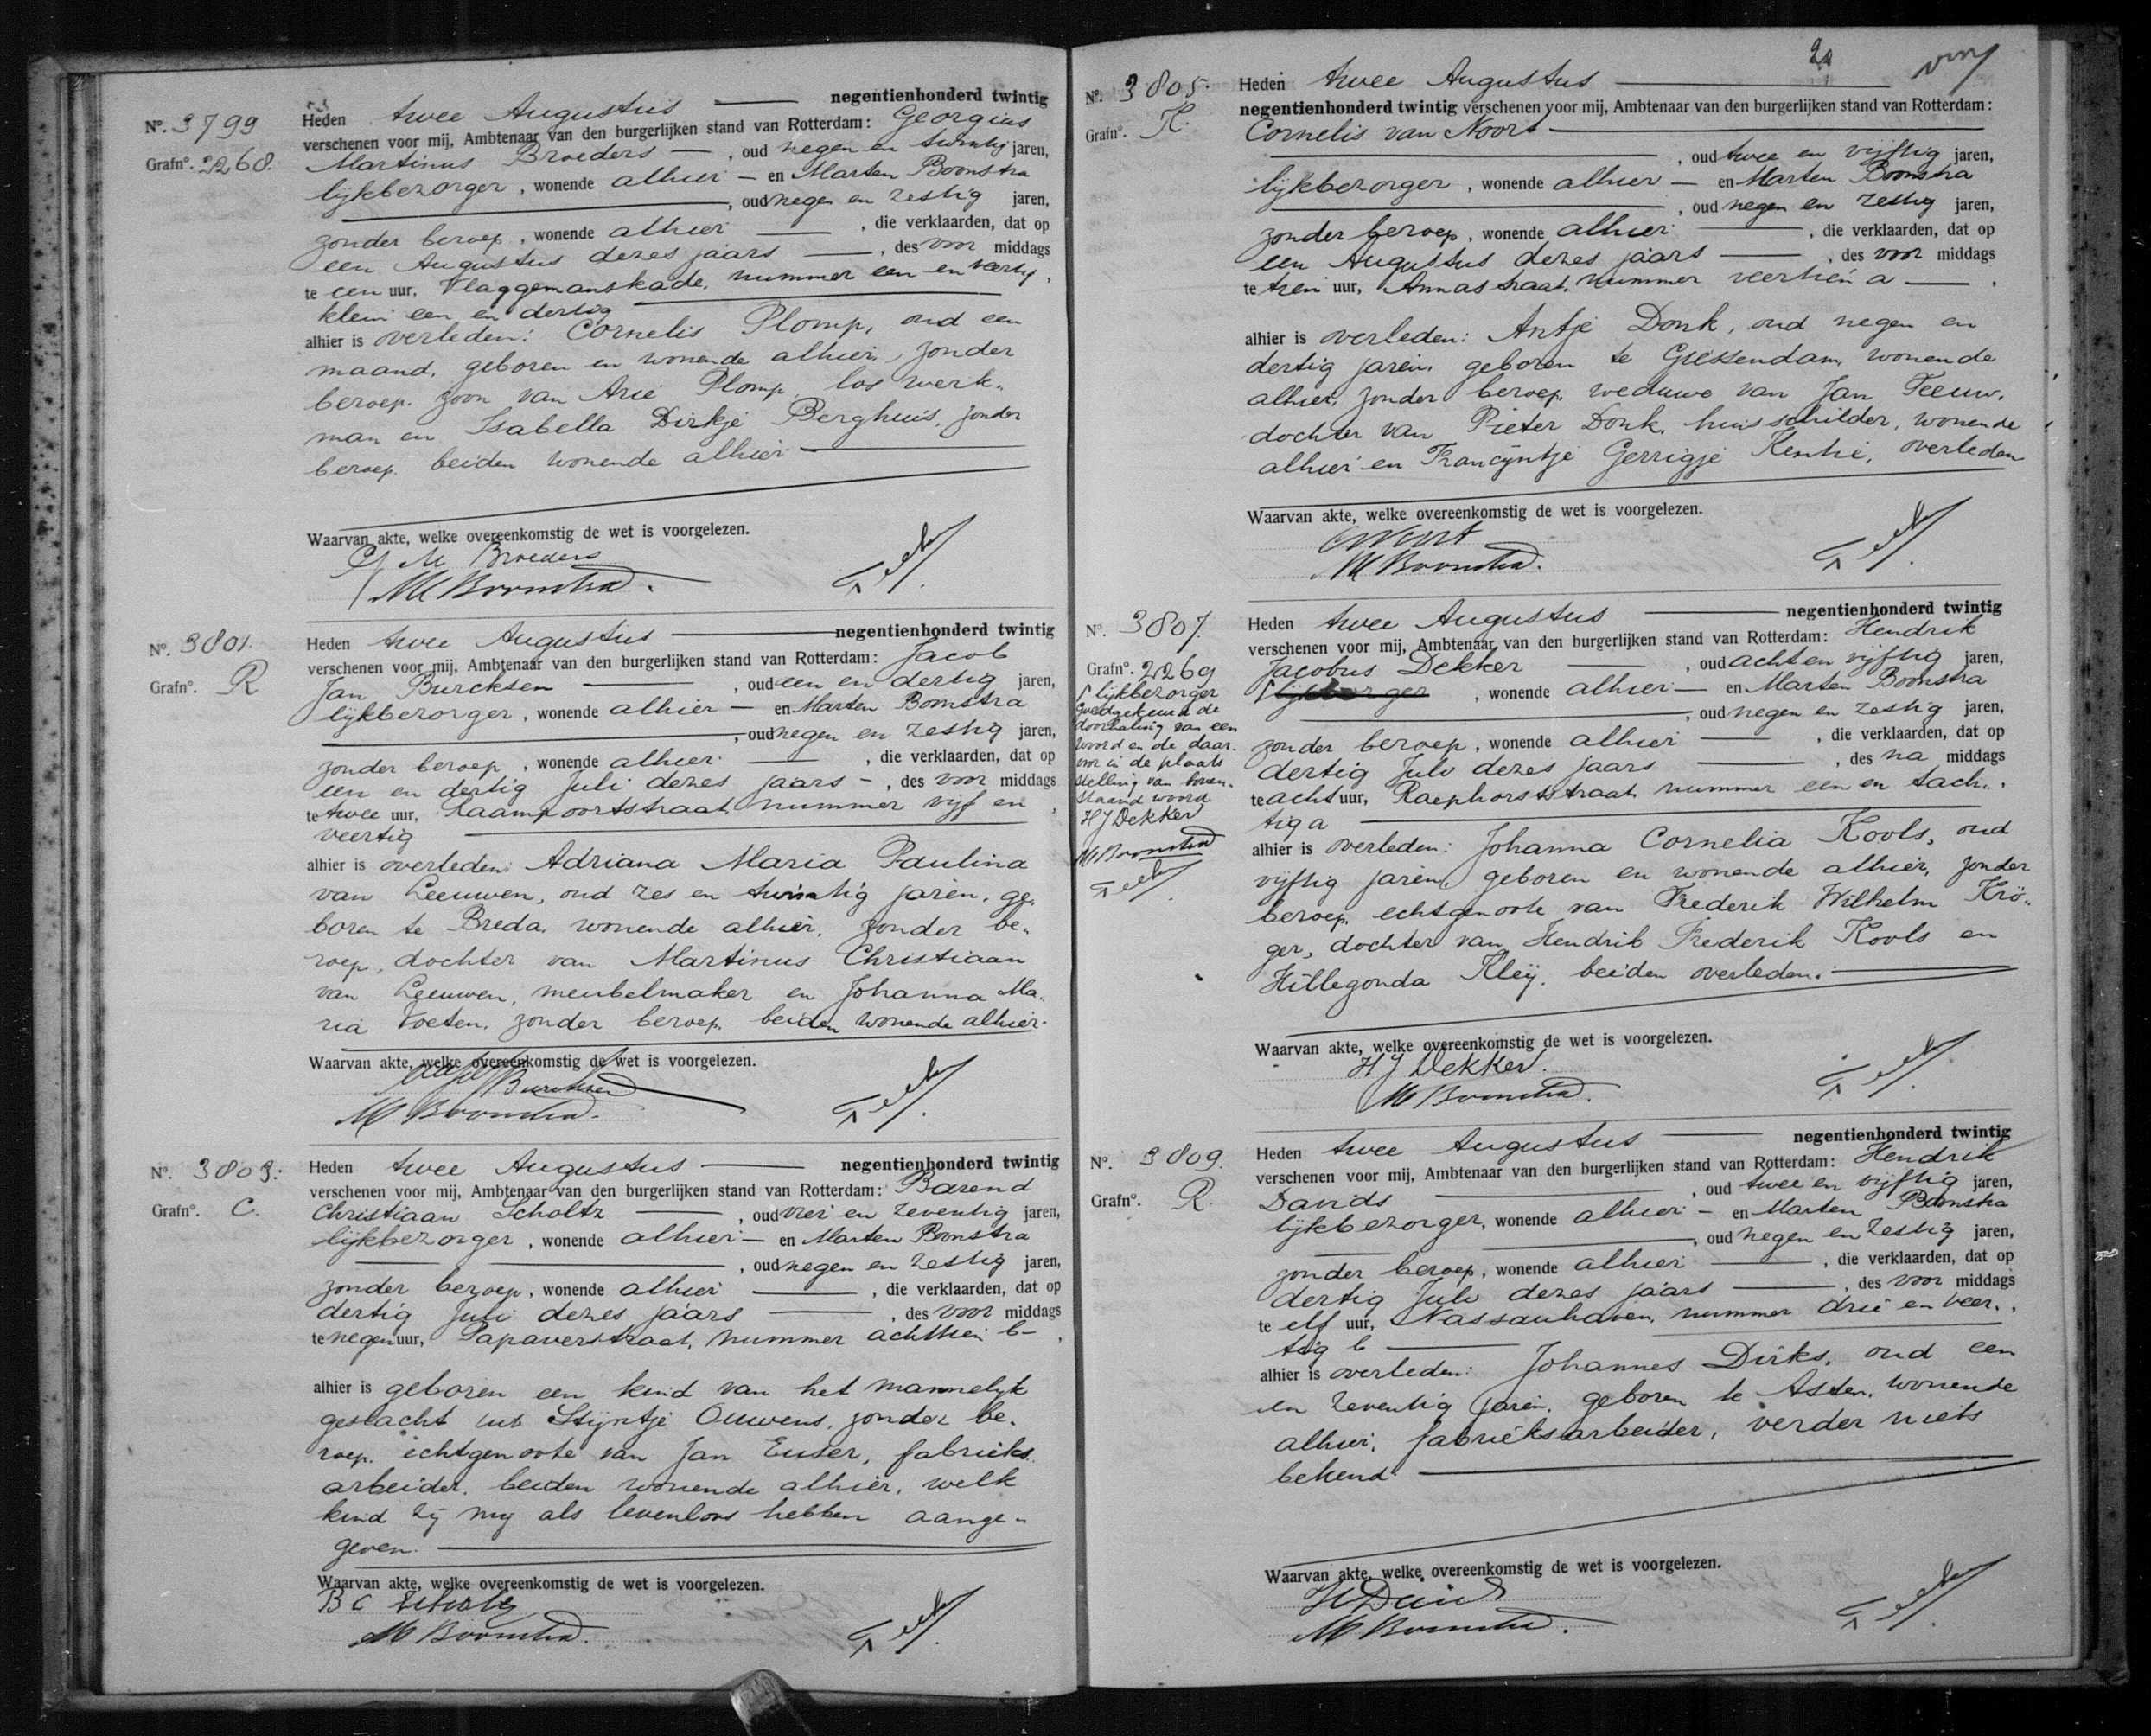 Nº. 3799
Grafnº. 2268.
Heden twee Augustus negentienhonderd twintig
verschenen voor mij, Ambtenaar van den burgerlijken stand van Rotterdam: Georgius
Martinus Broeders, oud negen en twintig jaren,
lijkbezorger, wonende alhier en Marten Boonstra
, oud negen en zestig jaren,
zonder beroep, wonende alhier, die verklaarden, dat op
een Augustus dezes jaars, des voor middags
te een uur, Vlaggemanskade, nummer een en veertig,
klein een en dertig
alhier is overleden: Cornelis Plomp, oud een
maand, geboren en wonende alhier, zonder
beroep. zoon van Arie Plomp, los werk-
man en Isabella Dirkje Berghuis, zonder
beroep. beiden wonende alhier
Waarvan akte, welke overeenkomstig de wet is voorgelezen.
G M Broeders
M Boonstra.
Nº. 3801.
Grafnº. R
Heden twee Augustus negentienhonderd twintig
verschenen voor mij, Ambtenaar van den burgerlijken stand van Rotterdam: Jacob
Jan Burcksen, oud een en dertig jaren,
lijkbezorger, wonende alhier en Marten Boonstra
, oud negen en zestig jaren,
zonder beroep, wonende alhier, die verklaarden, dat op
een en dertig Juli dezes jaars, des voor middags
te twee uur, Raampoortstraat nummer vijf en,
veertig
alhier is overleden: Adriana Maria Paulina
van Leeuwen, oud zes en twintig jaren, ge-
boren te Breda, wonende alhier, zonder be-
roep, dochter van Martinus Christiaan
van Leeuwen, meubelmaker en Johanna Ma-
ria Voeten, zonder beroep, beiden wonende alhier.
Waarvan akte, welke overeenkomstig de wet is voorgelezen.
Burcksen
M Boonstra.
Nº. 3803.
Grafnº. C.
Heden twee Augustus negentienhonderd twintig
verschenen voor mij, Ambtenaar van den burgerlijken stand van Rotterdam: Barend
Christiaan Scholtz, oud vier en zeventig jaren,
lijkbezorger, wonende alhier en Marten Boonstra
, oud negen en zestig jaren,
zonder beroep, wonende alhier, die verklaarden, dat op
dertig Juli dezes jaars, des voor middags
te negen uur, Papaverstraat, nummer achttien b,
alhier is geboren een kind van het mannelijk
geslacht uit Stijntje Ouwens, zonder be-
roep. echtgenoote van Jan Euser, fabrieks-
arbeider, beiden wonende alhier, welk
kind zij mij als levenloos hebben aange-
geven.
Waarvan akte, welke overeenkomstig de wet is voorgelezen.
B C Scholtz
M Boonstra.
Nº. 3805.
Grafnº. K.
Heden twee Augustus
negentienhonderd twintig verschenen voor mij, Ambtenaar van den burgerlijken stand van Rotterdam:
Cornelis van Noort
, oud twee en vijftig jaren,
lijkbezorger, wonende alhier en Marten Boonstra
, oud negen en zestig jaren,
zonder beroep, wonende alhier, die verklaarden, dat op
een Augustus dezes jaars, des voor middags
te tien uur, Annastraat, nummer veertien a.
alhier is overleden: Antje Donk, oud negen en
dertig jaren, geboren te Giessendam, wonende
alhier, zonder beroep, weduwe van Jan Teeuw,
dochter van Pieter Donk, huisschilder, wonende
alhier en Francijntje Gerrigje Kentie, overleden
Waarvan akte, welke overeenkomstig de wet is voorgelezen.
M Boonstra.
Nº. 3807.
Grafnº. 2269
lijkbezorger
Goedgekeurd de
doorhaling van een
woord en de daar-
voor in de plaats
stelling van boven-
staand woord
HJ Dekker
M Boonstra
Heden twee Augustus negentienhonderd twintig
verschenen voor mij, Ambtenaar van den burgerlijken stand van Rotterdam: Hendrik
Jacobus Dekker, oud acht en vijftig jaren,
, wonende alhier en Marten Boonstra
, oud negen en zestig jaren,
zonder beroep, wonende alhier, die verklaarden, dat op
dertig Juli dezes jaars, des na middags
te acht uur, Raephorststraat nummer een en tach-,
tig a
alhier is overleden: Johanna Cornelia Kools, oud
vijftig jaren, geboren en wonende alhier, zonder
beroep, echtgenoote van Frederik Wilhelm Krö-
ger, dochter van Hendrik Frederik Kools en
Hillegonda Kleij, beiden overleden.
Waarvan akte, welke overeenkomstig de wet is voorgelezen.
HJ Dekker.
M Boonstra.
Nº. 3809.
Grafnº. R
Heden twee Augustus negentienhonderd twintig
verschenen voor mij, Ambtenaar van den burgerlijken stand van Rotterdam: Hendrik
Davids, oud twee en vijftig jaren,
lijkbezorger, wonende alhier en Marten Boonstra
, oud negen en zestig jaren,
zonder beroep, wonende alhier, die verklaarden, dat op
dertig Juli dezes jaars, des voor middags
te elf uur, Nassauhaven, nummer drie en veer-,
tig b
alhier is overleden: Johannes Dirks, oud een
en zeventig jaren, geboren te Asten, wonende
alhier, fabrieksarbeider, verder niets
bekend.
Waarvan akte, welke overeenkomstig de wet is voorgelezen.
H Davids
M Boonstra.